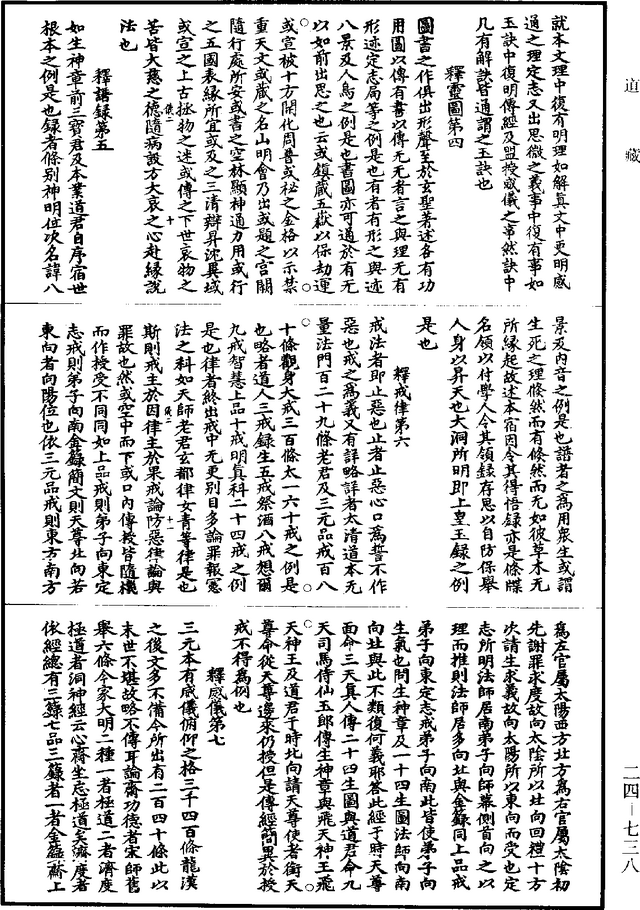 道藏
就本文理中復有明理如解真文中更明感
通之理定志又出思微之義事中復有事如
玉訣中復明傳經及盟授威儀之事然訣中
凡有解訣皆通謂之玉訣也
釋靈圖第四
圖書之作俱出形聲至於玄聖著述各有功
用圖以傳有書以傳无无者言之與理无有
形迹定志局等之例是也有者有形之與迹
八景及人鳥之例是也書圖亦可通於有无
以如前出思之也云或鎮藏五嶽以保劫運
或宣被十方開化周普或祕之金格以示禁
重天文或藏之名山明會乃出或題之宮闕
隨行處所安或書之空林顯神通力用或行
之五國表緣所宜或及之三清辯昇沈異域
或宣之上古拯物之迷或傳之下世哀物之
苦皆大慈之德隨病設方大哀之心赴緣說
法也
釋譜録第五
如生神章前三寶君及本業道君自序宿世
根本之例是也録者條别神明位次名諱八
景及内音之例是也譜者之爲用衆生或謂
生死之理倏然而有倏然而无如彼草木无
所緣起故述本宿因令其得悟録亦是條牒
名領以付學人令其領録存思以自防保舉
人身以昇天也大洞所明即上皇玉録之例
是也
釋戒律第六
戒法者即止惡也止者止惡心口爲誓不作
惡也戒之爲義又有詳略詳者太清道本无
量法門百二十九條老君及三元品戒百八
十條觀身大戒三百條太一六十戒之例是
也略者道人三戒録生五戒祭酒八戒想爾
九戒智慧上品十戒明真科二十四戒之例
是也律者終出戒中无更别目多論罪報憲
法之科如天師老君玄都律女青等律是也
斯則戒主於因律主於果戒論防惡律論與
罪故也然或空中而下或口内傳授皆隨機
而作授受不同同如上品戒則弟子向東定
志戒則弟子向南金籙簡文則天尊北向若
東向者向陽位也依三元品戒則東方南方
爲左官屬太陽西方北方爲右官屬太陰初
先謝罪求度故向太陰所以北向回禮十方
次請生求義故向太陽所以東向而受也定
志所明法師居南弟子向師幕側首向之以
理而推則法師居多向北與金籙同上品戒
弟子向東定志戒弟子向南此皆使弟子向
生氣也問生神章及一十四生圖法師向南
向北與此不類復何義耶答此經于時天尊
面命三天真人傳二十四生圖與道君命九
天司馬侍仙五郎傳生神章與飛天神王飛
天神王及道君于時北向請天尊使者銜天
尊命從天尊邊來仍授但是傳經簡異於授
戒不得爲例也
釋威儀第七
三元本有威儀俯仰之格三千四百條龍漢
之後文多不備今所出有二百四十條此以
末世不堪故略不傳耳論齋功德者宋師舊
舉六條今家大明二種一者極道二者濟度
極道者洞神經云心齋坐忘極道矣濟度者
依經總有三籙七品三籙者一者金籙齋上
二四－七三八